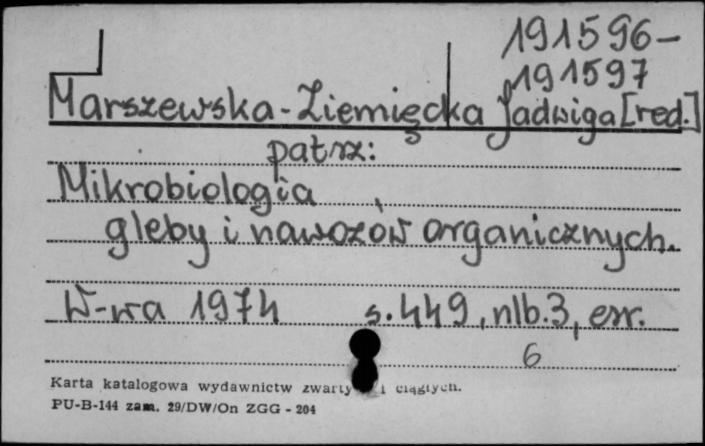 191596-
191597
Marszewska-Ziemięcka Jadwiga [red.]
patrz:
Mikrobiologia
gleby i nawozów organicznych.
W-wa 1974 s. 449, nlb. 3, err.
6
Karta katalogowa wydawnictw zwartych i ciągłych.
PU-B-144 zam. 29/DW/On ZGG - 204